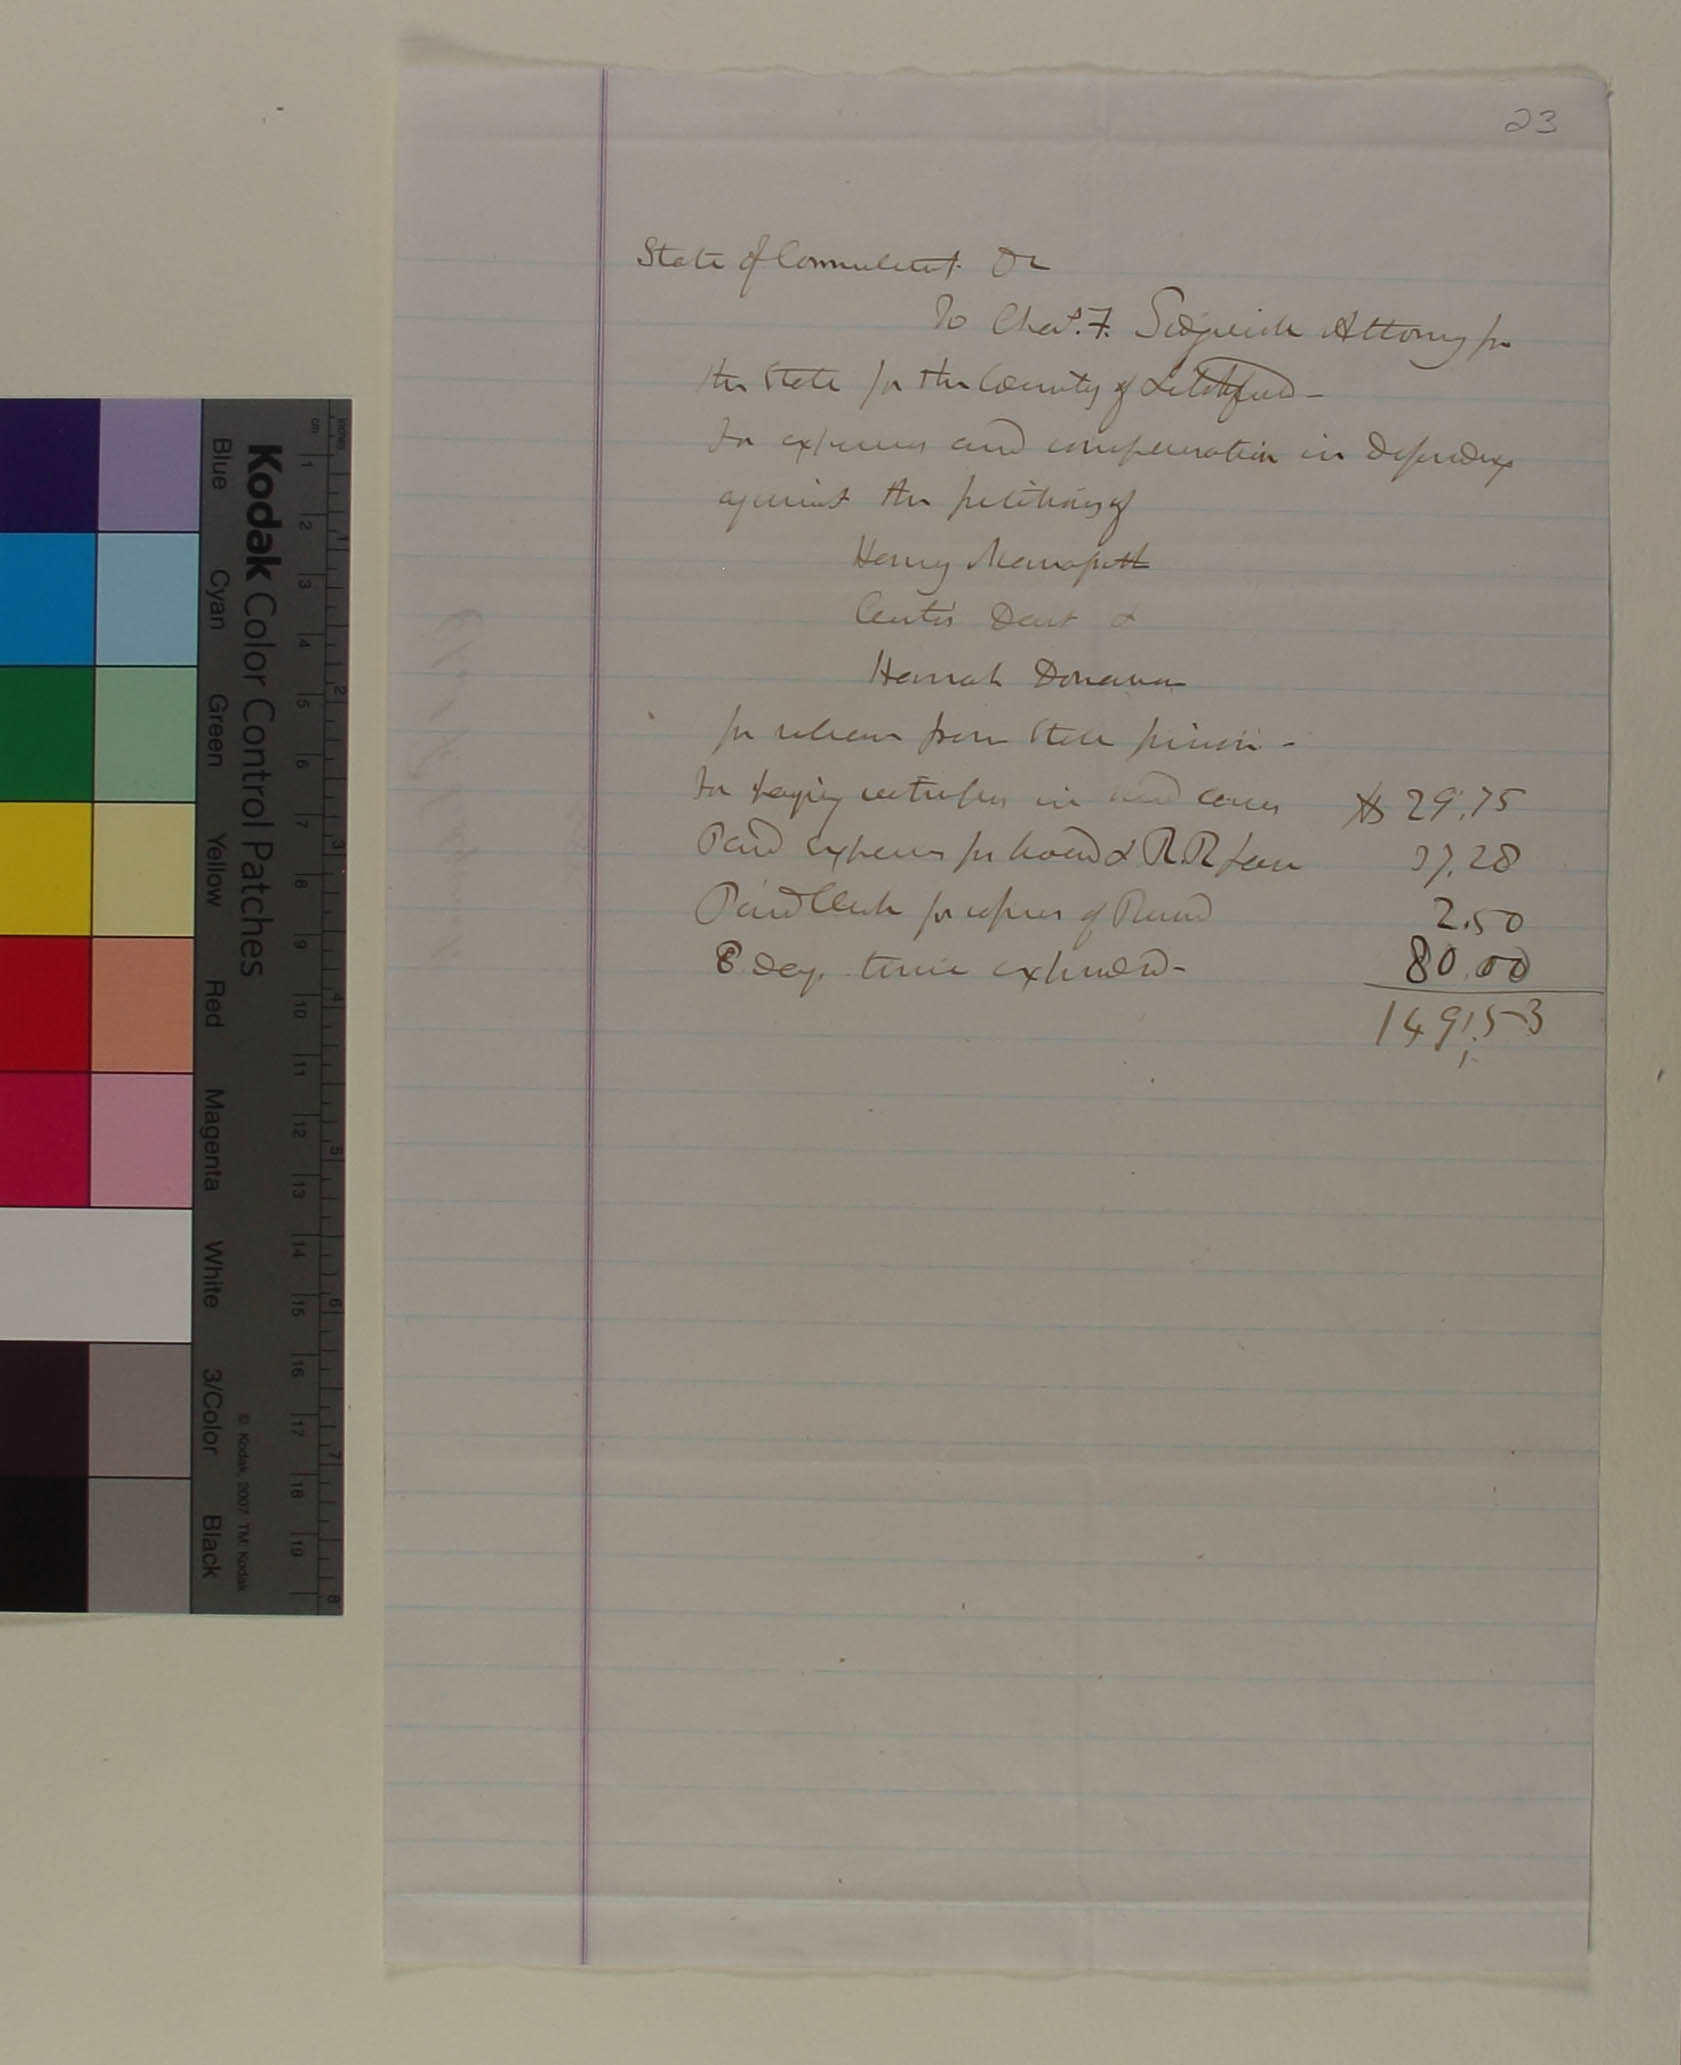 23
State of Connecticut Dr
To Chas. F. Sedgwick Attorney for
the State for the County of Litchfield -
For expenses and compensation in defending
against the petitions of
Henry
Curtis Dart &
Hannah Donavan
for release from State prison -
For paying witnesses in said cases $ 29.75
Paid expenses for board & R.R fare 37.28
Paid Clerk for copies of Record 2.50
8 days time expended - 80.00
149.53
Kodak Color Control Patches
Blue Cyan Green Yellow Red Magenta White 3/Color Black
© Kodak, 2007 TM: Kodak
inches 1 2 3 4 5 6 7 8
cm 1 2 3 4 5 6 7 8 9 10 11 12 13 14 15 16 17 18 19